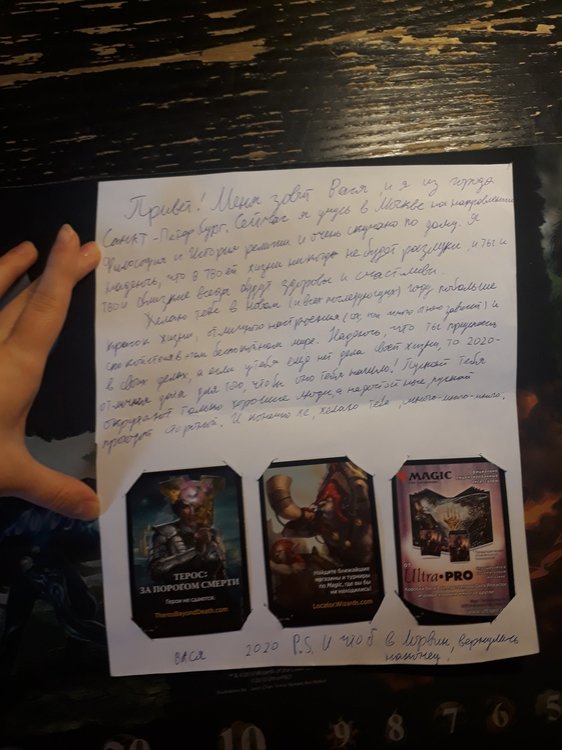 Привет! Меня зовут Вася, и я из города
Санкт-Петербург. Сейчас я учусь в Москве на направлении
Философия и История религии и очень скучаю по дому. Я
надеюсь, что в твоей жизни никогда не будет разлуки, и ты и
твои близкие всегда будут здоровы и счастливы.
Желаю тебе в Новом (и всех последующих) году побольше
красок жизни, отличного настроения (ох, как много от него зависит) и
спокойствия в этом беспокойном мире. Надеюсь, что ты преуспеешь
в своих делах, а если у тебя ещё нет дела своей жизни, то 2020-
отличная дата для того, чтобы оно тебя нашло! Пускай тебя
окружают только хорошие люди, а нарадостные пускай
проходят стороной. И конечно же, желаю тебе, много-много-много.
ТЕРОС:
ЗА ПОРОГОМ СМЕРТИ
Герои не сдаются.
TherosBeyondDeath.com
Найдите ближайшие
магазины и турниры
по Magic, где вы бы
ни находились!
Locator.Wizards.com
MAGIC
от
Ultra•PRO
Вася 2020 P.S. И чтоб в Лорвин вернулась
наконец.
10 9 8 7 6 5